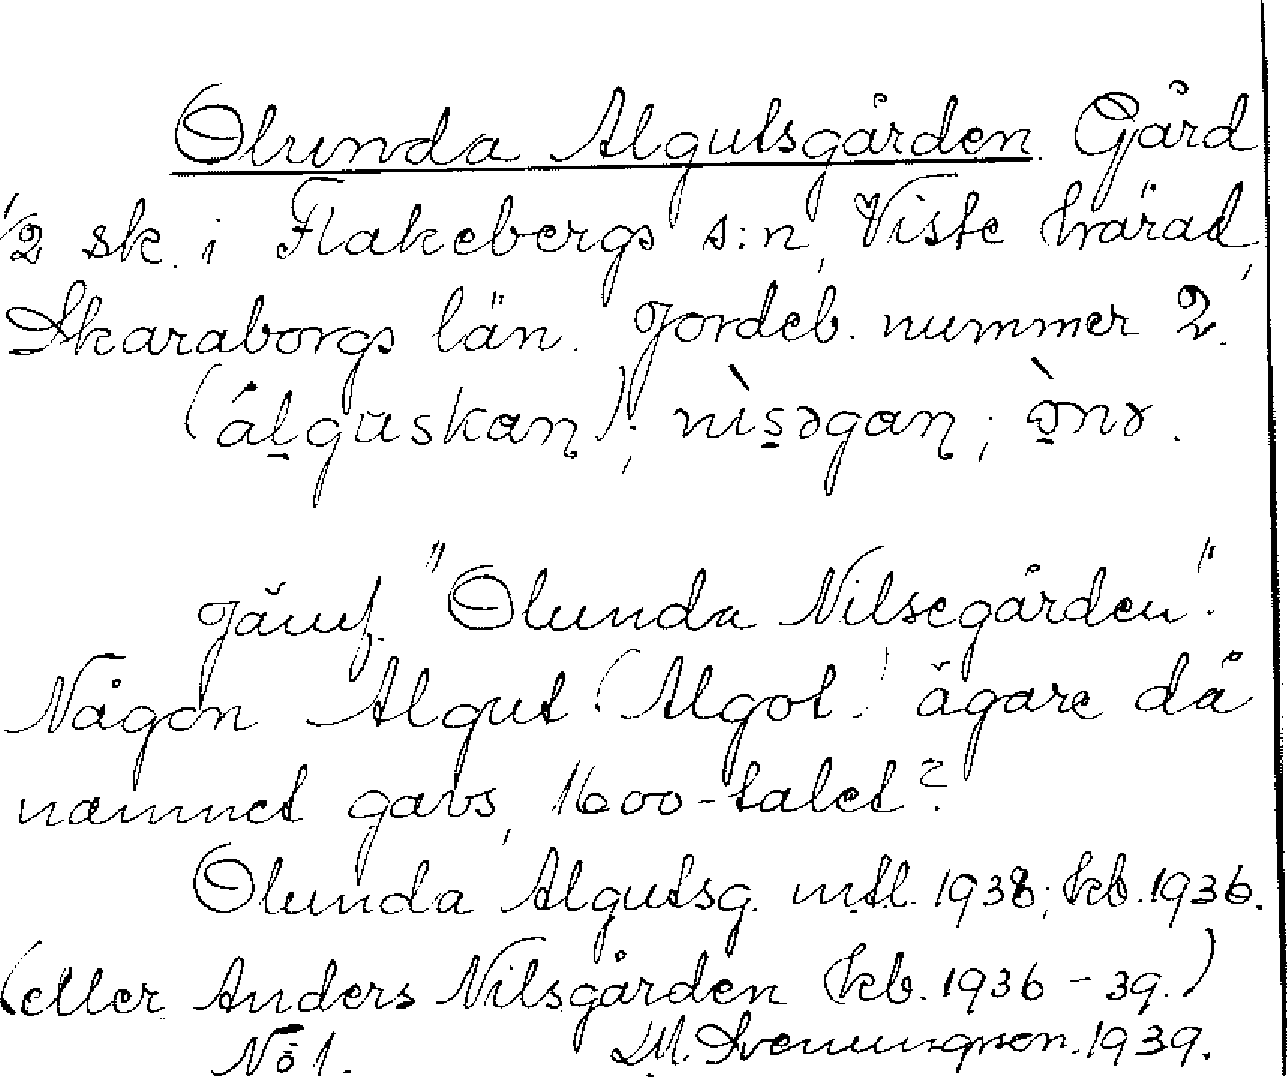 Olunda Algutsgården. Gård
1/2 sk. i Flakebergs s:n, Viste härad,
Skaraborgs län. Jordeb. nummer 2.
(ál̠guskan); nìs̠əgaɳ; ò̠nə.
Jämf. "Olunda Nilsegården".
Någon Algut (Algot) ägare då
namnet gavs, 1600-talet?
Olunda Algutsg. mtl. 1938; kb. 1936.
(eller Anders Nilsgården kb. 1936-39.)
No 1. M. Svenungson. 1939.